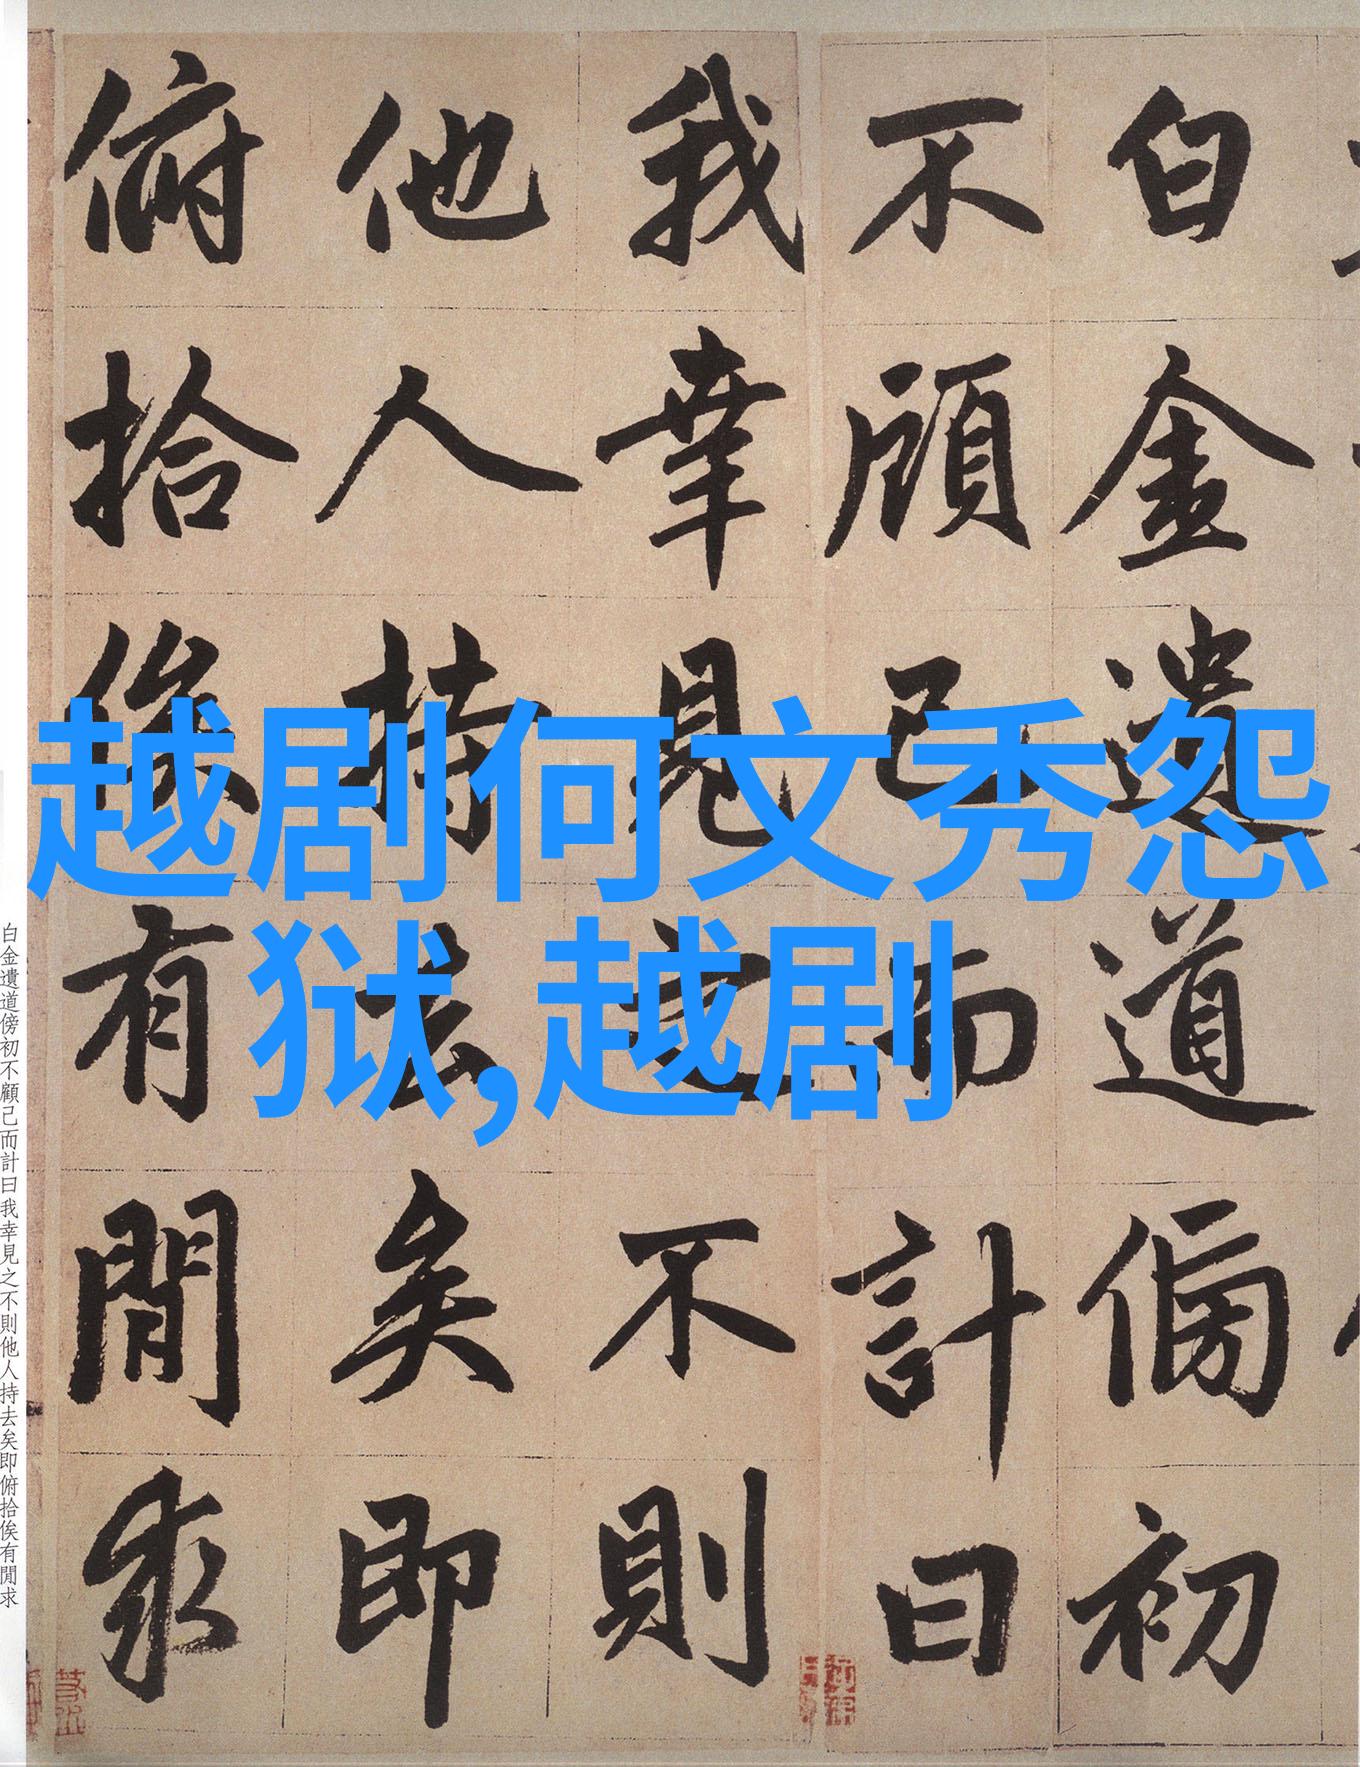 白金遺道傍初
不顧己而計曰
我幸見之不則
他人持去矣即
俯拾俟有閒求
越剧何文秀怨
狱,越剧
白金遺道傍初不顧己而計曰我幸見之不則他人持去矣即俯拾俟有閒求